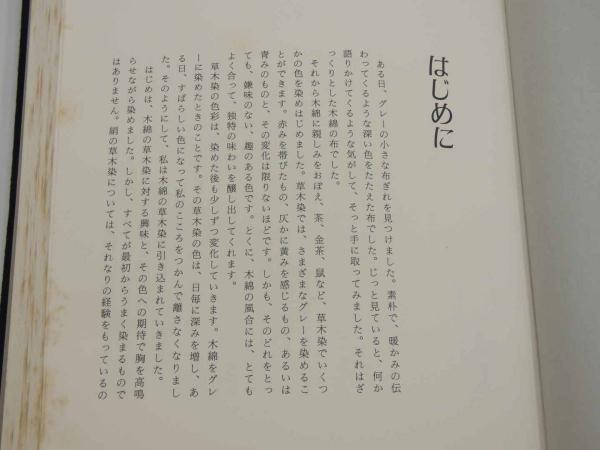 はじめに
ある日、グレーの小さな布ぎれを見つけました。素朴で、暖かみの伝
わってくるような深い色をたたえた布でした。じっと見ていると、何か
語りかけてくるような気がして、そっと手に取ってみました。それはざ
っくりとした木綿の布でした。
それから木綿に親しみをおぼえ、茶、金茶、鼠など、草木染でいくつ
かの色を染めはじめました。草木染では、さまざまなグレーを染めるこ
とができます。赤みを帯びたもの、仄かに黄みを感じるもの、あるいは
青みのものと、その変化は限りないほどです。しかも、そのどれをとっ
ても、嫌味のない、趣のある色です。とくに、木綿の風合には、とても
よく合って、独特の味わいを醸し出してくれます。
草木染の色彩は、染めた後も少しずつ変化していきます。木綿をグレ
ーに染めたときのことです。その草木染の色は、日毎に深みを増し、あ
る日、すばらしい色になって私のこころをつかんで離さなくなりまし
た。そのようにして、私は木綿の草木染に引き込まれていきました。
はじめは、木綿の草木染に対する興味と、その色への期待で胸を高鳴
らせながら染めました。しかし、すべてが最初からうまく染まるもので
はありません。絹の草木染については、それなりの経験をもっているの